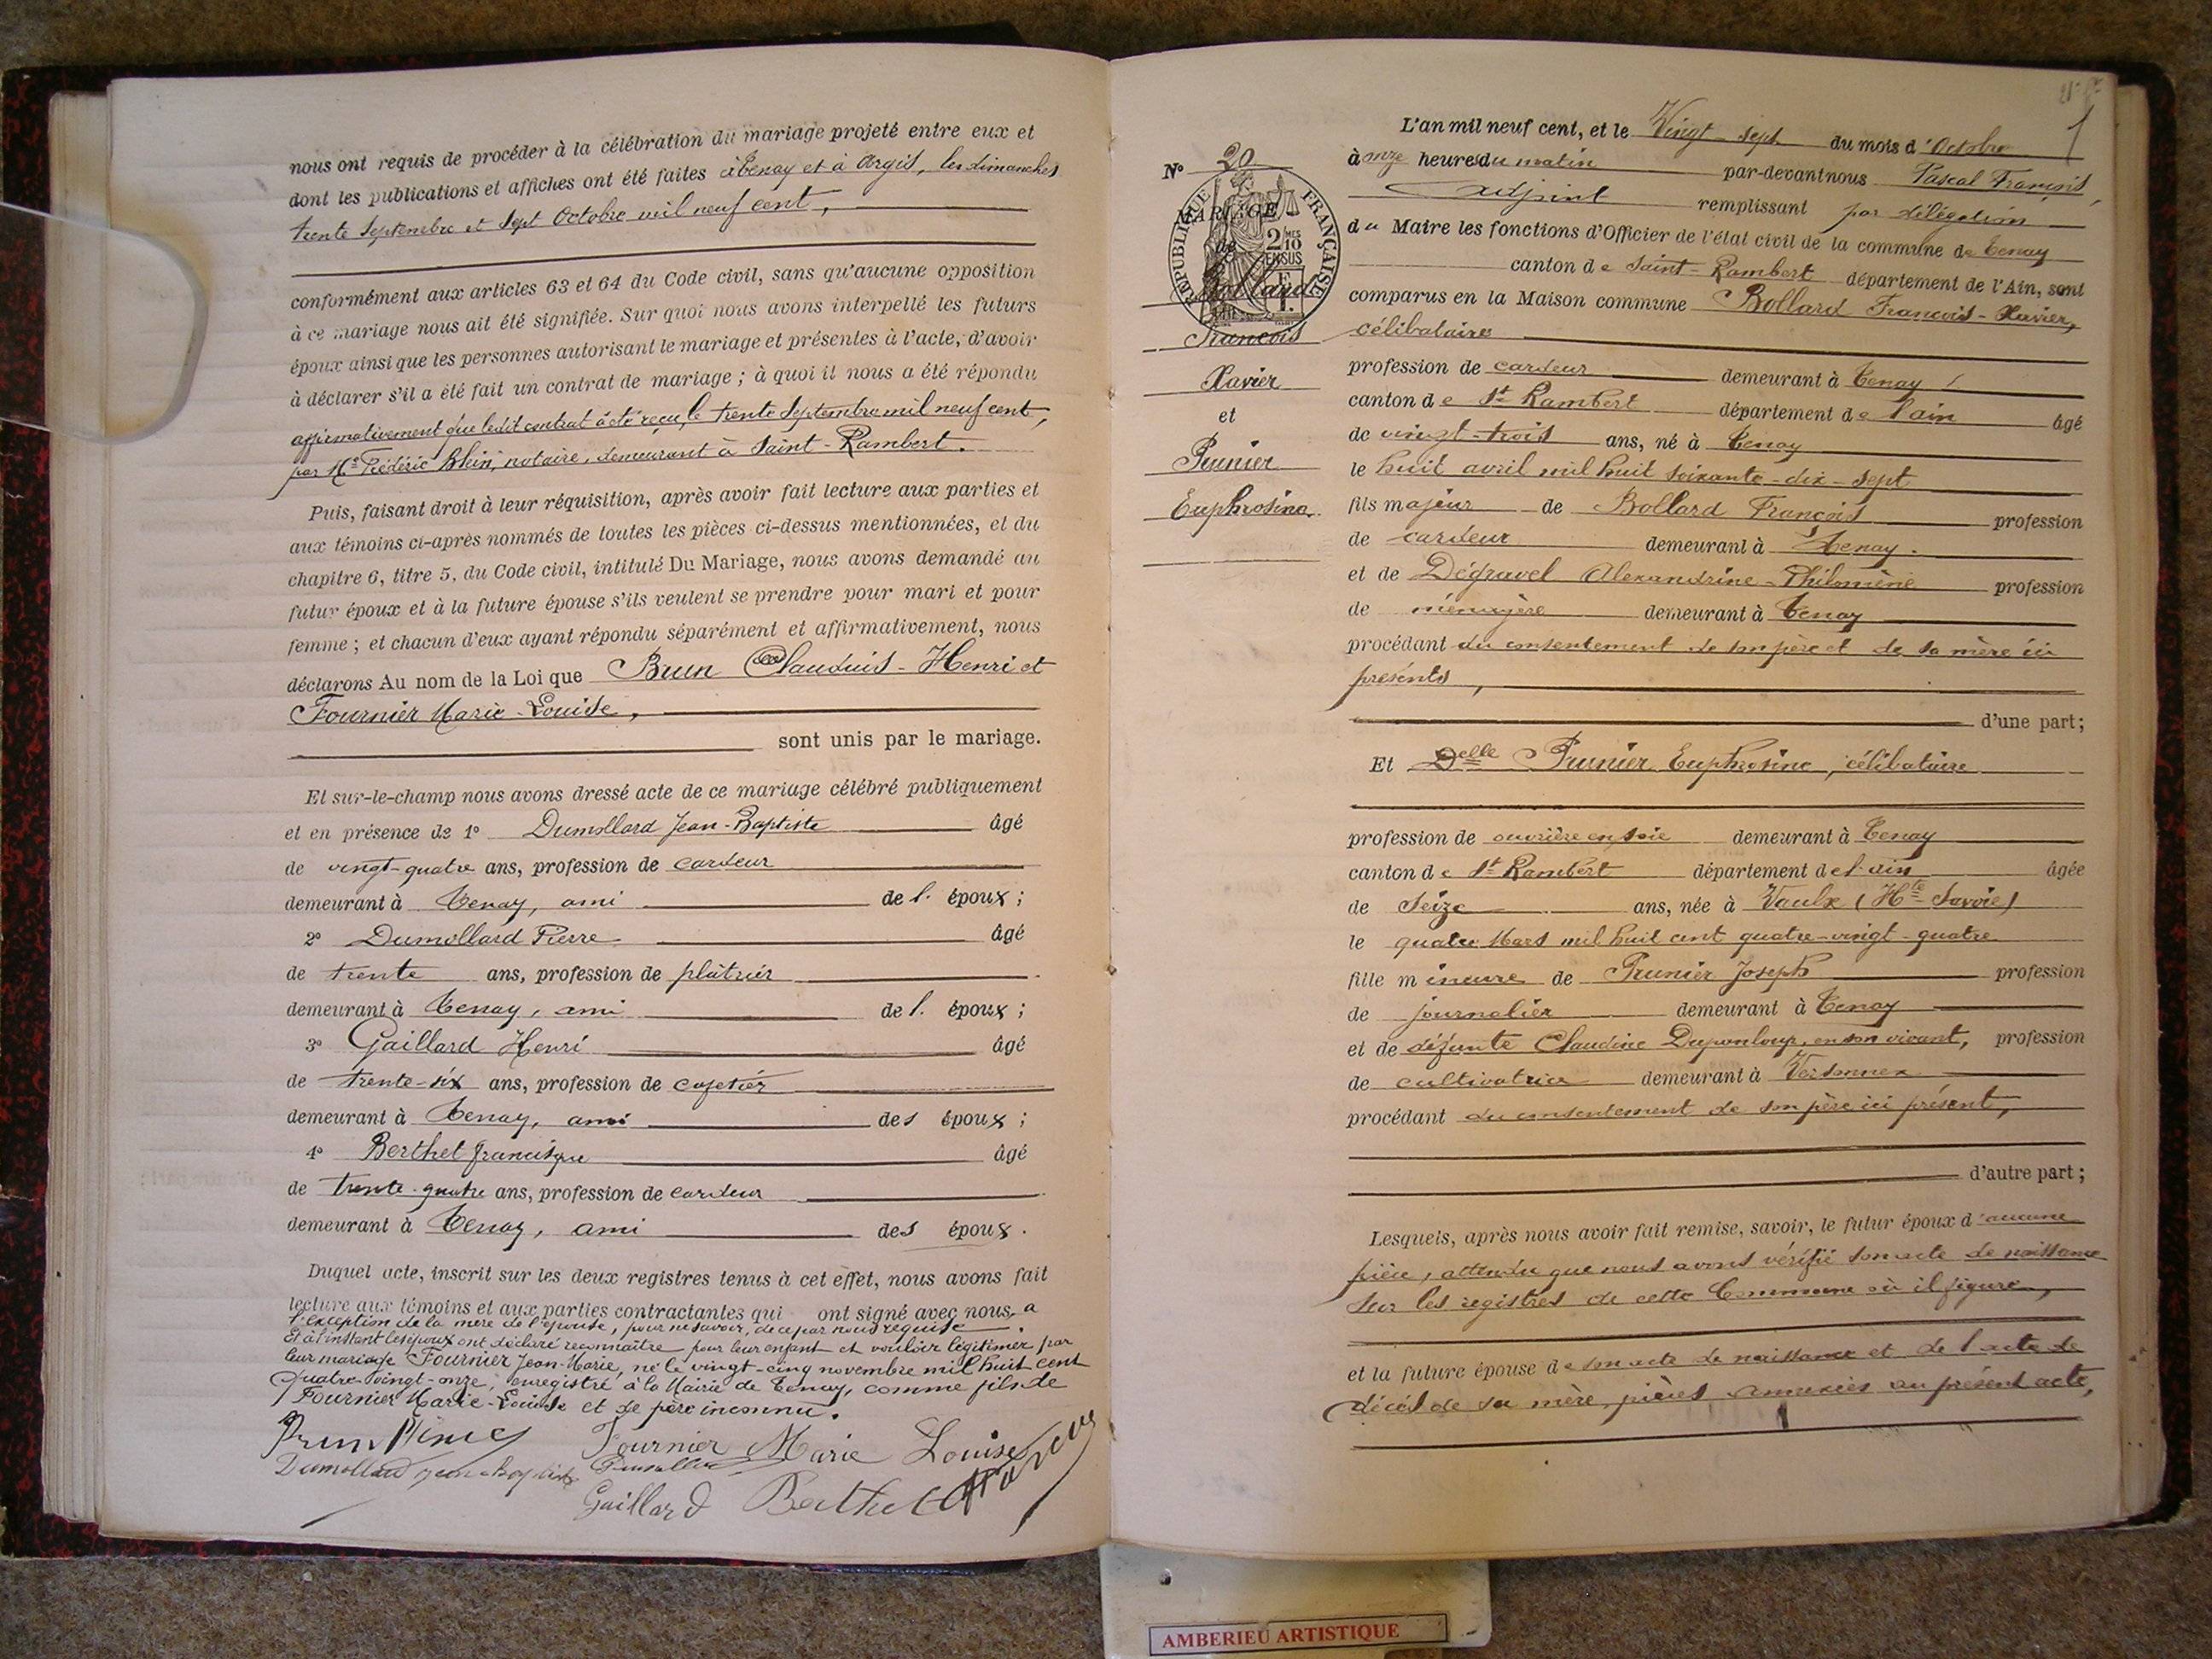 nous ont requis de procéder à la célébration du mariage projeté entre eux et
dont les publications et affiches ont été faites à Tenay et à Argis, les dimanches
trente Septembre et Sept Octobre mil neuf cent,
conformément aux articles 63 et 64 du Code civil, sans qu'aucune opposition
à ce mariage nous ait été signifiée. Sur quoi nous avons interpellé les futurs
époux ainsi que les personnes autorisant le mariage et présentes à l'acte, d'avoir
à déclarer s'il a été fait un contrat de mariage ; à quoi il nous a été répondu
affirmativement que ledit contrat a été reçu, le trente Septembre mil neuf cent,
par Me Frédéric Blein, notaire, demeurant à Saint-Rambert.
Puis, faisant droit à leur réquisition, après avoir fait lecture aux parties et
aux témoins ci-après nommés de toutes les pièces ci-dessus mentionnées, et du
chapitre 6, titre 5, du Code civil, intitulé Du Mariage, nous avons demandé au
futur époux et à la future épouse s'ils veulent se prendre pour mari et pour
femme ; et chacun d'eux ayant répondu séparément et affirmativement, nous
déclarons Au nom de la Loi que Brun Claudius-Henri et
Fournier Marie-Louise,
sont unis par le mariage.
Et sur-le-champ nous avons dressé acte de ce mariage célébré publiquement
et en présence de 1° Dumollard Jean-Baptiste âgé
de vingt-quatre ans, profession de cardeur
demeurant à Tenay, ami de l. époux ;
2° Dumollard Pierre âgé
de trente ans, profession de plâtrier
demeurant à Tenay, ami de l. époux ;
3° Gaillard Henri âgé
de trente-six ans, profession de cafetier
demeurant à Tenay, ami des époux ;
4° Berthet Francisque âgé
de trente-quatre ans, profession de cardeur
demeurant à Tenay, ami des époux.
Duquel acte, inscrit sur les deux registres tenus à cet effet, nous avons fait
lecture aux témoins et aux parties contractantes qui ont signé avec nous, a
l'exception de la mère de l'épouse, pour ne savoir, de ce par nous requise.
Et à l'instant les époux ont déclaré reconnaître pour leur enfant et vouloir légitimer par
leur mariage Fournier Jean-Marie, né le vingt-cinq novembre mil huit cent
quatre-vingt-onze, enregistré à la Mairie de Tenay, comme fils de
Fournier Marie-Louise et de père inconnu.
Brun Fournier Marie Louise
Dumollard Jean Baptiste Dumollard
Gaillard Berthet
N° 20
RÉPUBLIQUE FRANÇAISE
2 MES 10 EN SUS
MARIAGE
de
Bollard
François
Xavier
et
Prunier
Euphrosine
L'an mil neuf cent, et le Vingt-sept du mois d'Octobre
à onze heures du matin par-devant nous Pascal François,
adjoint remplissant par délégation
du Maire les fonctions d'Officier de l'état civil de la commune de Tenay
canton de Saint-Rambert département de l'Ain, sont
comparus en la Maison commune Bollard François-Xavier,
célibataire
profession de cardeur demeurant à Tenay
canton de St Rambert département de l'ain âgé
de vingt-trois ans, né à Tenay
le huit avril mil huit soixante-dix-sept
fils majeur de Bollard François profession
de cardeur demeurant à Tenay.
et de Dégravel Alexandrine-Philomène profession
de ménagère demeurant à Tenay
procédant du consentement de son père et de sa mère ici
présents,
d'une part ;
Et Delle Prunier Euphrosine, célibataire
profession de ouvrière en soie demeurant à Tenay
canton de St Rambert département de l'ain âgée
de Seize ans, née à Vaulx (Hte Savoie)
le quatre Mars mil huit cent quatre-vingt-quatre
fille mineure de Prunier Joseph profession
de journalier demeurant à Tenay
et de défunte Claudine Duponloup, en son vivant, profession
de cultivatrice demeurant à Versonnex
procédant du consentement de son père ici présent,
d'autre part ;
Lesquels, après nous avoir fait remise, savoir, le futur époux d'aucune
pièce, attendu que nous avons vérifié son acte de naissance
sur les registres de cette Commune où il figure,
et la future épouse de son acte de naissance et de l'acte de
décès de sa mère, pièces annexées au présent acte,
AMBERIEU ARTISTIQUE